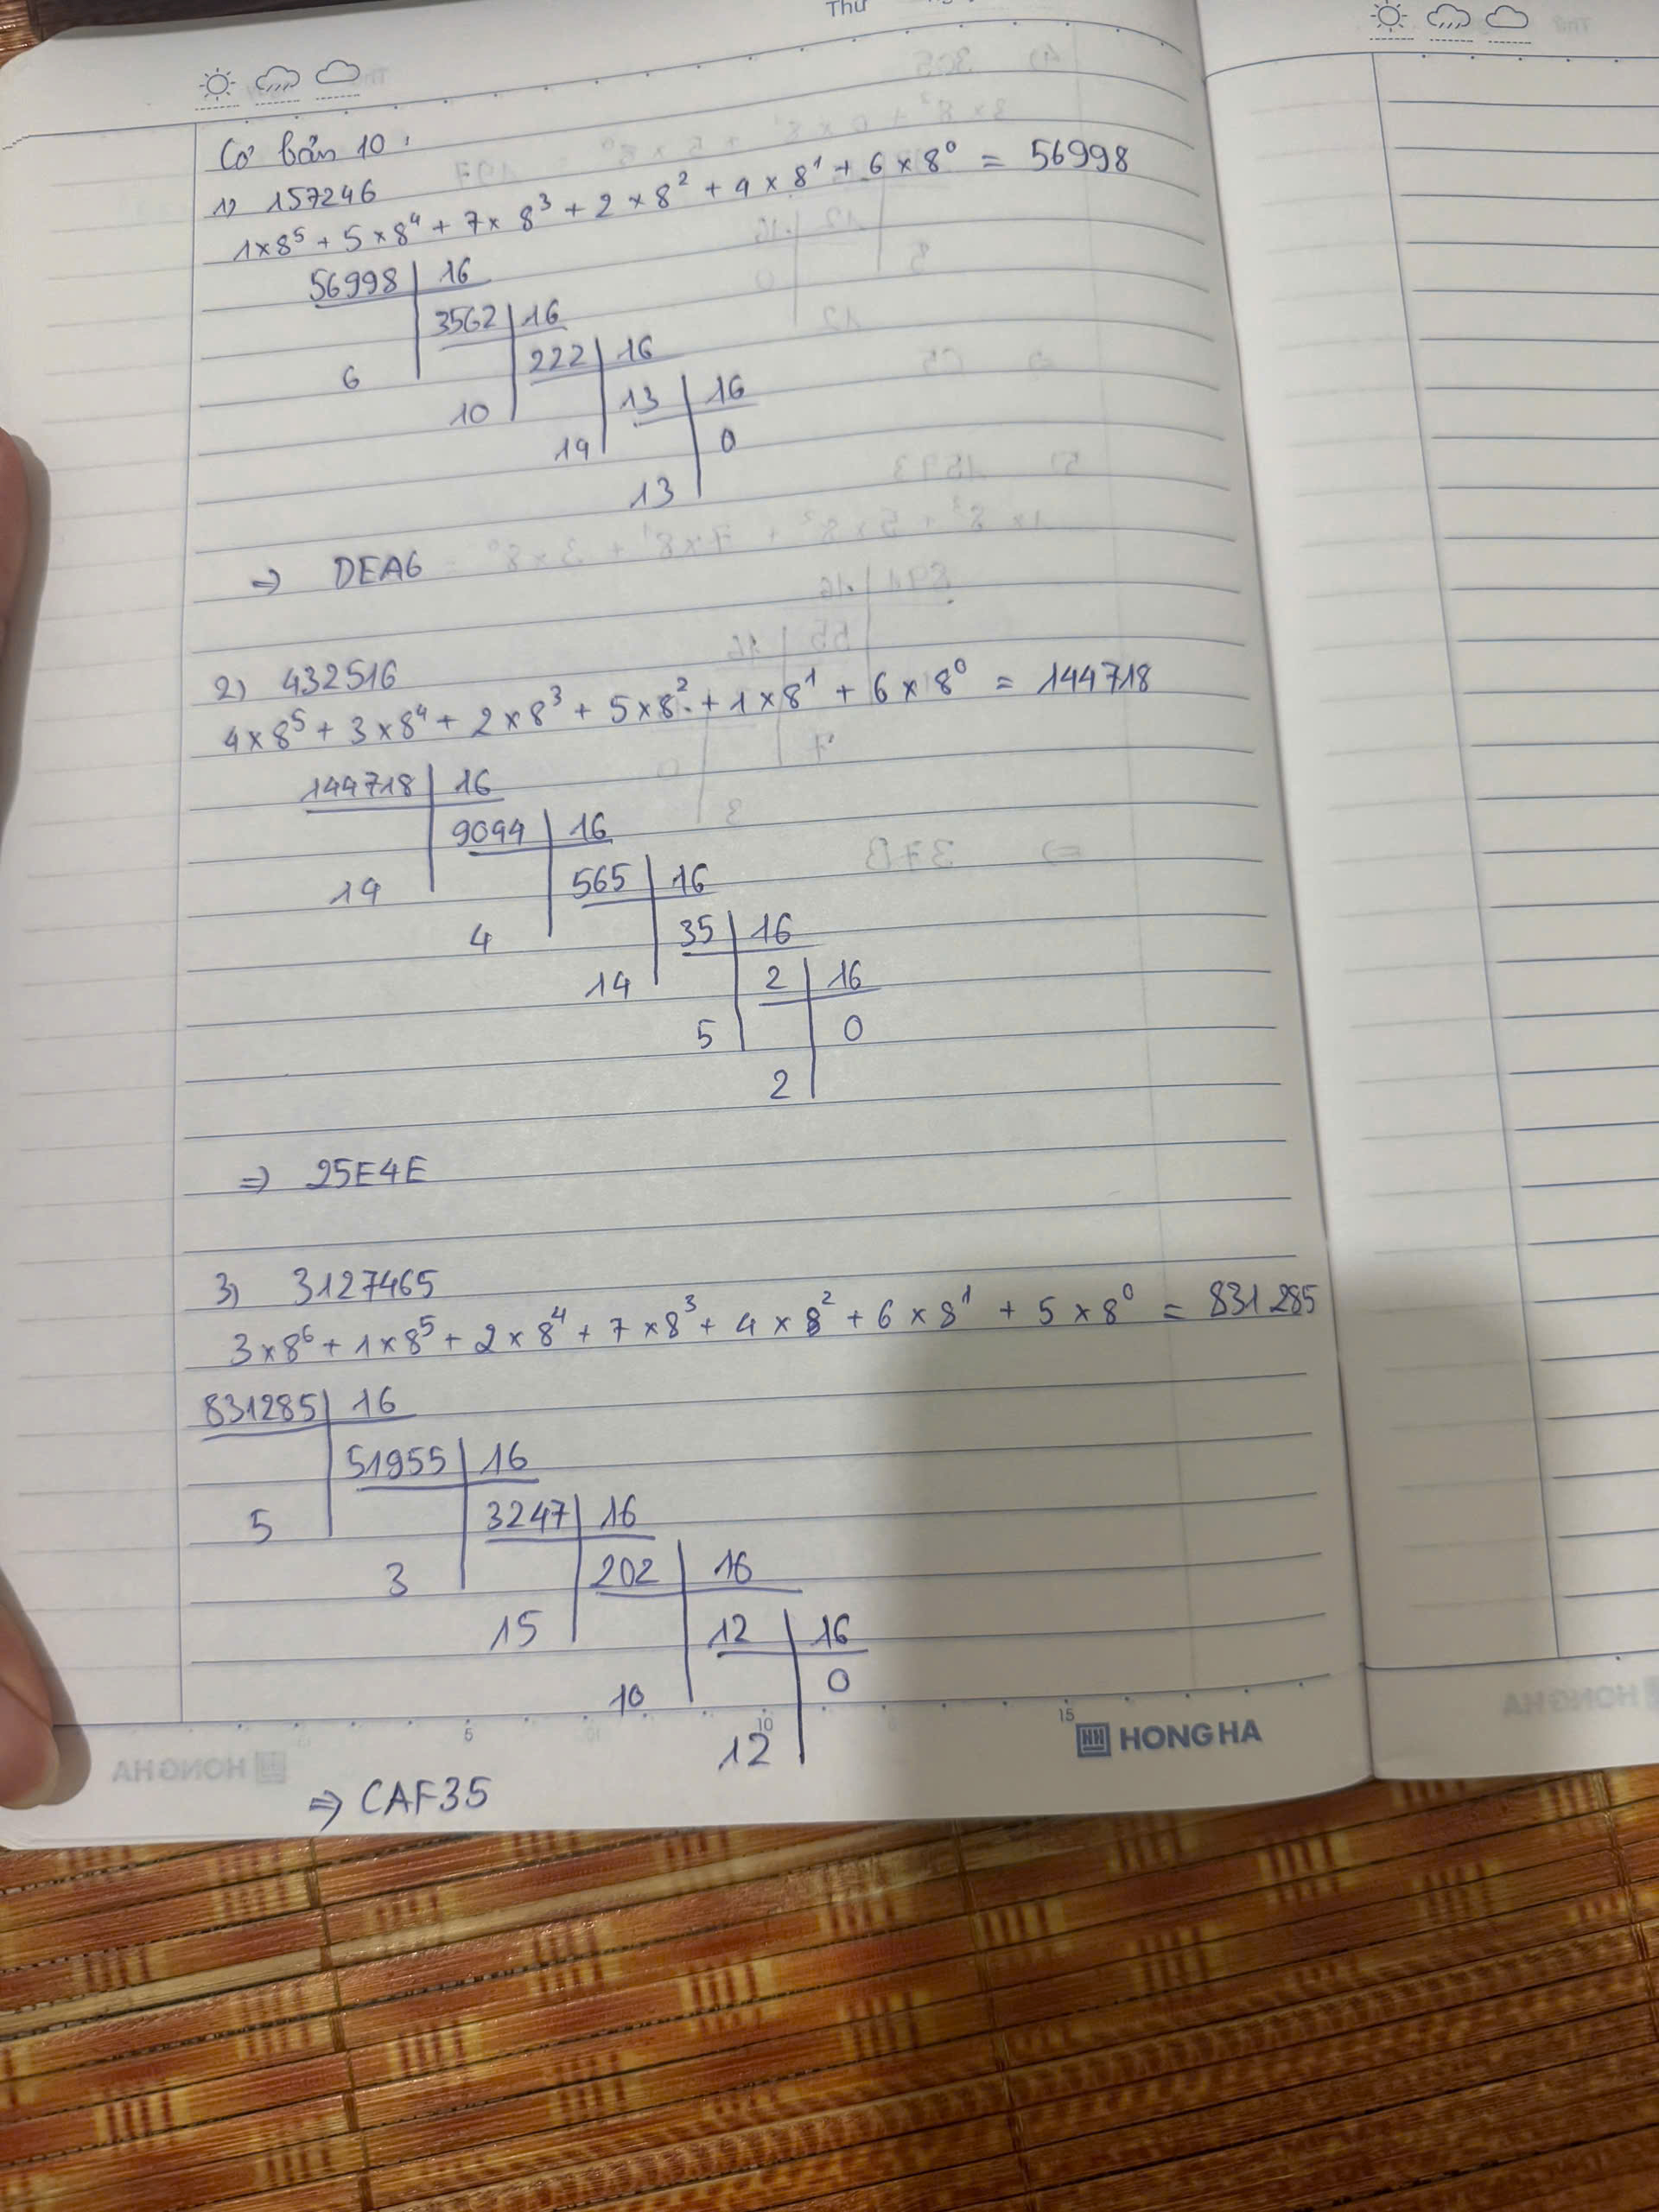 Thứ
Cơ bản 10 :
1) 157246
1×8⁵ + 5×8⁴ + 7×8³ + 2×8² + 4×8¹ + 6×8⁰ = 56998
56998 | 16
3562 | 16
222 | 16
6
13 | 16
10
14
0
13
=> DEA6
2) 432516
4×8⁵ + 3×8⁴ + 2×8³ + 5×8² + 1×8¹ + 6×8⁰ = 144718
144718 | 16
9044 | 16
14
565 | 16
4
35 | 16
14
2 | 16
5
0
2
=> 25E4E
3) 3127465
3×8⁶ + 1×8⁵ + 2×8⁴ + 7×8³ + 4×8² + 6×8¹ + 5×8⁰ = 831285
831285 | 16
51955 | 16
5
3247 | 16
3
202 | 16
15
12 | 16
10
0
12
5 10 15
HONG HA
=> CAF35